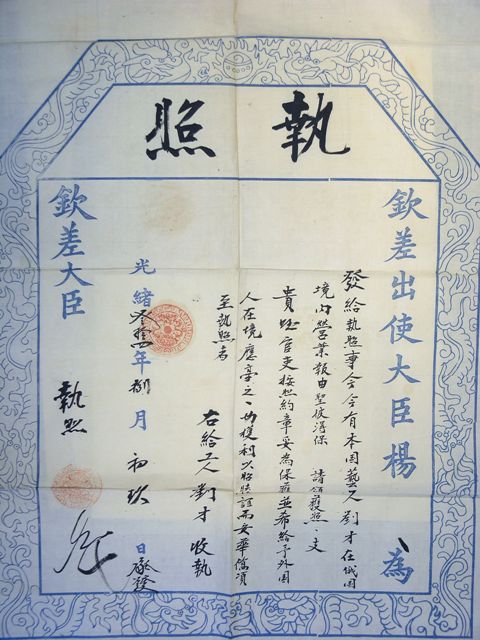 執照
欽差出使大臣楊 為
發給執照事今有本國藝人劉才在俄國
境內營業報由聖彼得保 請領護照
貴 官吏按照約章妥為保護並希給予外國
人在境應享之一切獲利以昭睦誼而安華僑須
至執照者
右給工人劉才收執
光緒叁拾四年捌月初玖日
欽差大臣
執照